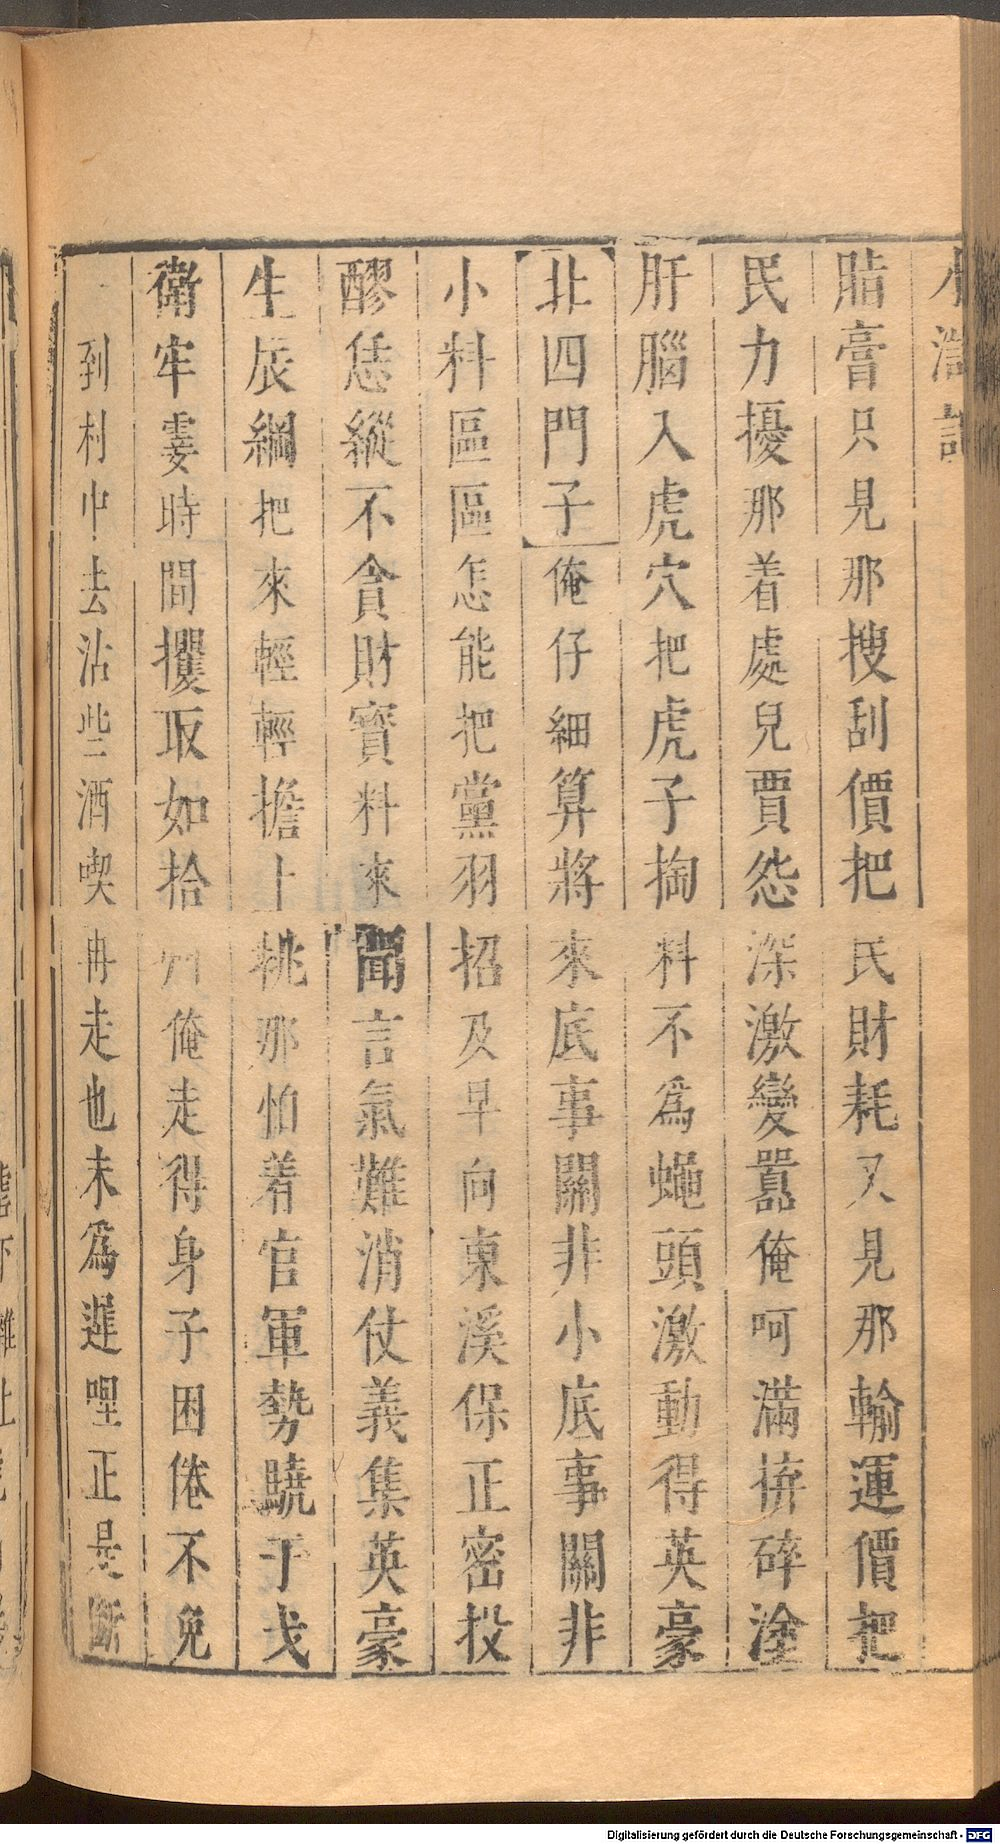 水滸記
脂膏只見那搜刮價把民財耗又見那輸運價把
民力擾那着處兒賈怨深激變囂俺呵滿拚碎塗
肝腦入虎穴把虎子掏料不爲蠅頭激動得英豪
北四門子俺仔細算將來底事關非小底事關非
小料區區怎能把黨羽招及早向東溪保正密投
醪恁縱不貪財寳料來聞言氣難消仗義集英豪
生辰綱把來輕輕擔上桃那怕着官軍勢驍干戈
衛牢霎時間攫取如拾俺走得身子困倦不免
到村中去沽些酒喫再走也未爲遲哩正是斷
Digitalisierung gefördert durch die Deutsche Forschungsgemeinschaft - DFG